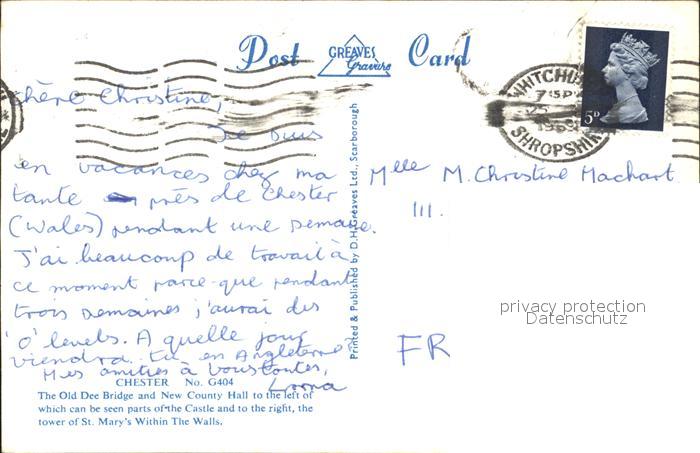 Post GREAVES Gravure Card
WHITCHU
7 15P
25
1969
SHROPSHIR
5D
chère Christine,
Je suis
en vacances chez ma
tante près de Chester
(Wales) pendant une semaine.
J'ai beaucoup de travail à
ce moment parce-que pendant
trois semaines j'aurai des
'O' levels. A quelle jour
viendra tu en Angleterre?
Mes amitiés à vous toutes,
Lorna
Printed & Published by D.H.Greaves Ltd., Scarborough
Mlle M. Christine Machart
111.
FR
privacy protection
Datenschutz
CHESTER No. G404
The Old Dee Bridge and New County Hall to the left of
which can be seen parts of the Castle and to the right, the
tower of St. Mary's Within The Walls.